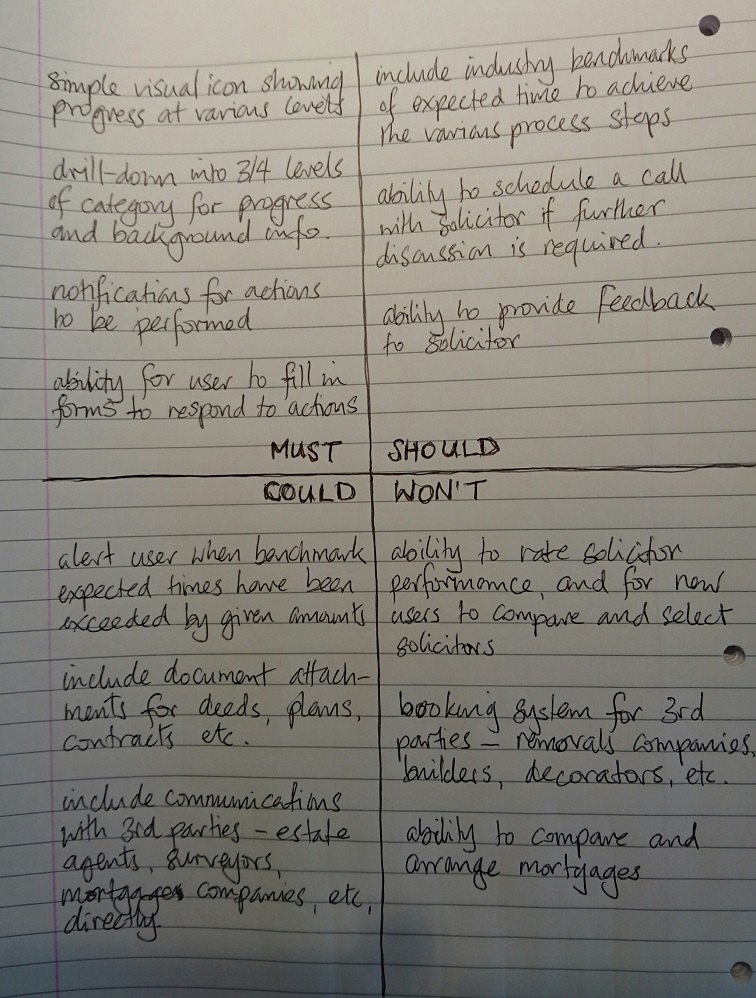 simple visual icon showing
progress at various levels
drill-down into 3/4 levels
of category for progress
and background info.
notifications for actions
to be performed
ability for user to fill in
forms to respond to actions
MUST
include industry benchmarks
of expected time to achieve
the various process steps
ability to schedule a call
with solicitor if further
discussion is required.
ability to provide feedback
to solicitor
SHOULD
COULD
alert user when benchmark
expected times have been
exceeded by given amounts
include document attach-
ments for deeds, plans,
contracts etc.
include communications
with 3rd parties - estate
agents, surveyors,
mortgages companies, etc,
directly
WON'T
ability to rate solicitor
performance, and for new
users to compare and select
solicitors
booking system for 3rd
parties - removals companies,
builders, decorators, etc.
ability to compare and
arrange mortgages